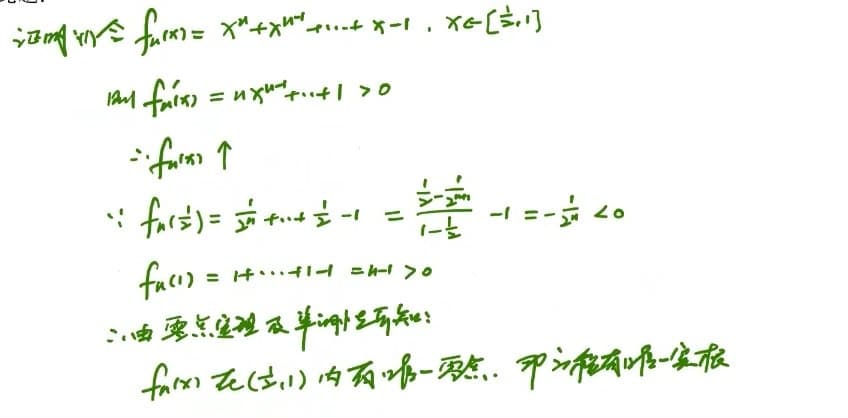 证明 (1) 令 fₙ(x) = xⁿ + xⁿ⁻¹ + ⋯ + x - 1 , x ∈ [1/2, 1]
则 fₙ'(x) = nxⁿ⁻¹ + ⋯ + 1 > 0
∴ fₙ(x) ↑
∵ fₙ(1/2) = 1/2ⁿ + ⋯ + 1/2 - 1 = (1/2 - 1/2ⁿ⁺¹)/(1 - 1/2) - 1 = - 1/2ⁿ < 0
fₙ(1) = 1 + ⋯ + 1 - 1 = n-1 > 0
∴ 由零点定理及单调性可知:
fₙ(x) 在 (1/2, 1) 内有唯一零点. 即方程有唯一实根